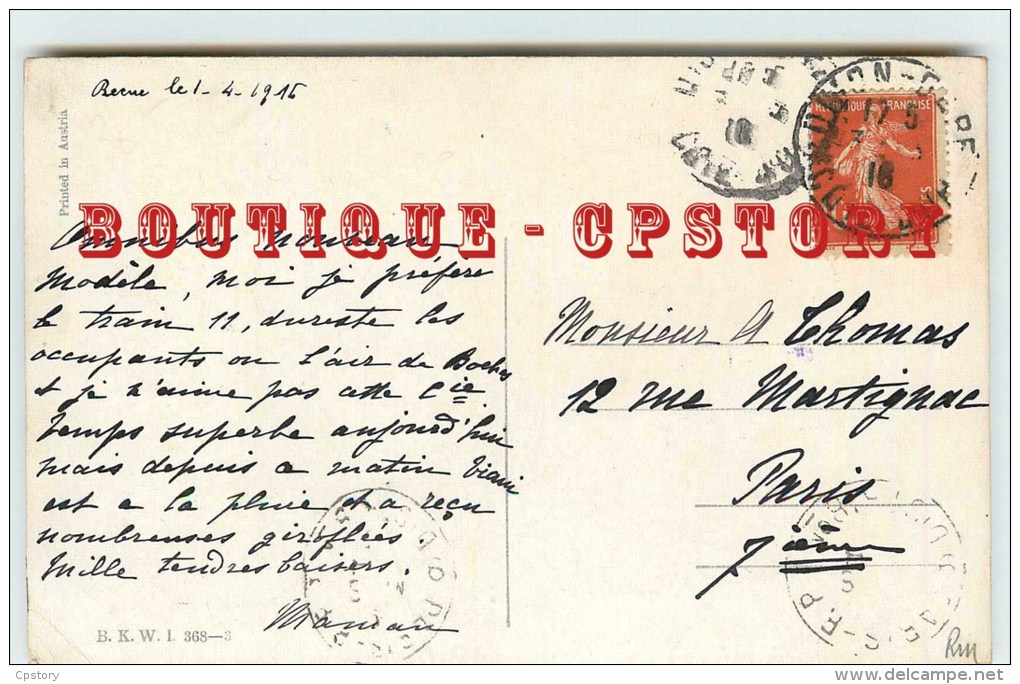 le 1-4-1916
Printed in Austria
BOUTIQUE - CPSTORY
Omnibus nouveau
Modèle, moi je préfère
le train 11, dureste les
occupants on l'air de Boches
et je n'aime pas cette Cie
Temps superbe aujourd'hui
mais depuis ce matin
est a la pluie et a reçu
nombreuses giroflées
Mille tendres baisers.
Maman
B. K. W. I. 368—3
Monsieur A Thomas
12 rue Martignac
Paris
7ième
RM
Cpstory
delcampe.net